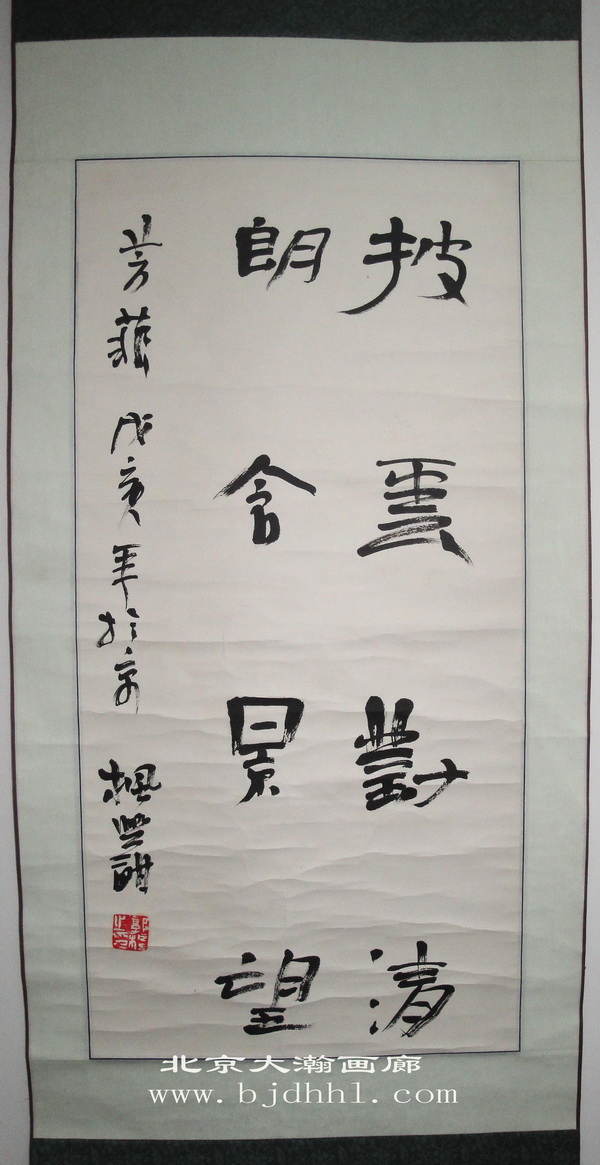 披雲對清
朗含景望
芳菲 戊亥年於京 楓
北京大瀚画廊
www.bjdhhl.com